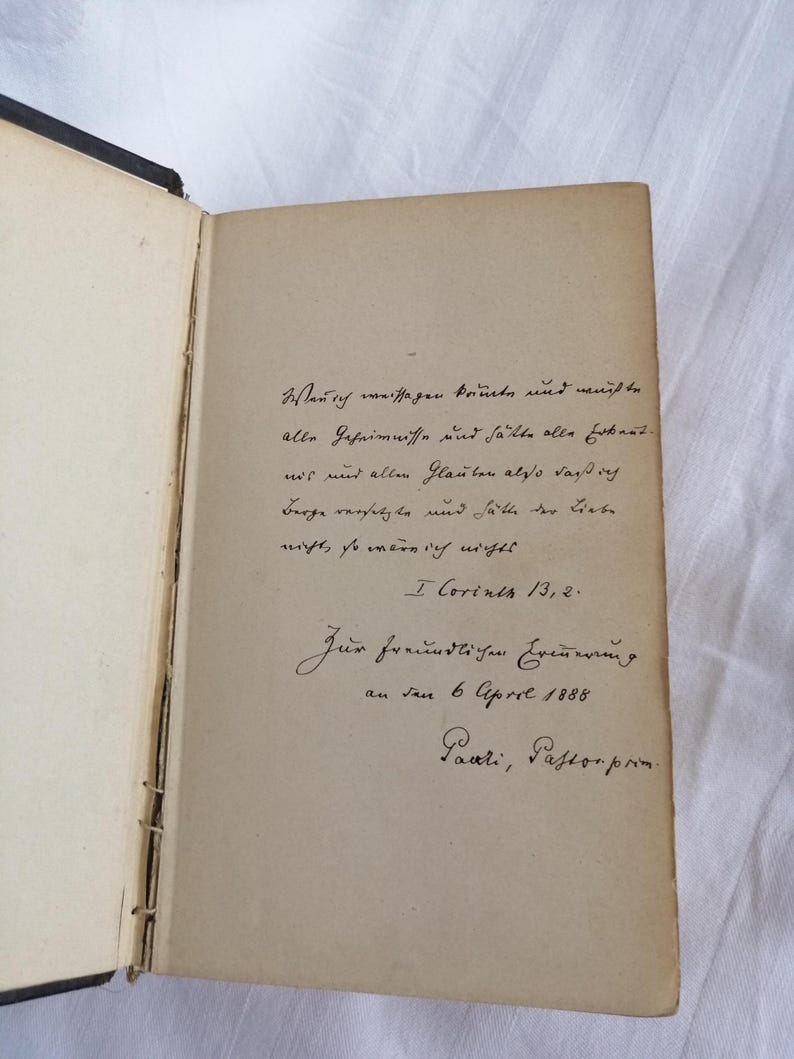 Wen̄ ich weissagen könnte und wüßte
alle Geheimnisse und hätte alle Erkent-
nis und allen Glauben also daß ich
Berge versetzte und hätte der Liebe
nicht, so wäre ich nichts
I Corinth 13, 2.
Zur freundlichen Erin̄erung
an den 6 April 1888
Pauli, Pastor. prim.